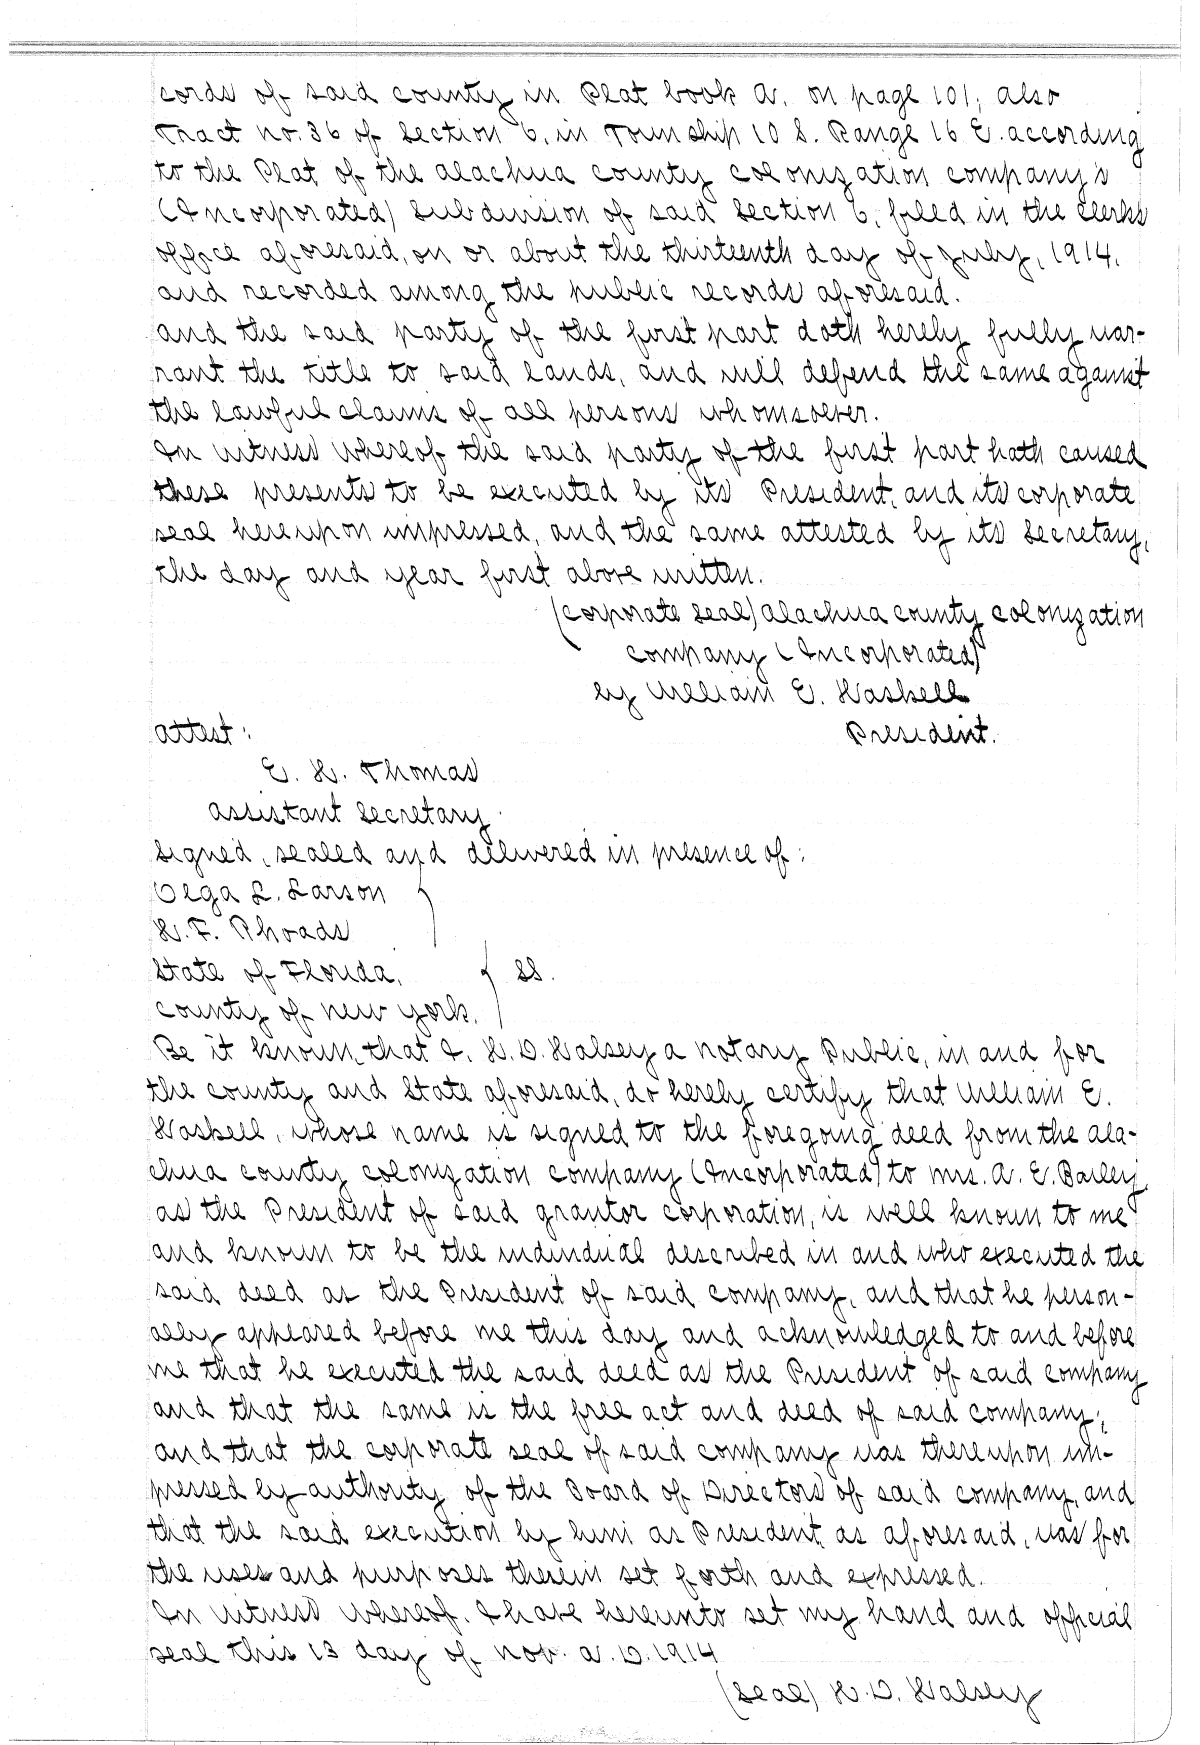 cords of said county in Plat book A. on page 101; also
Tract no. 36 of Section 6, in Township 10 S. Range 16 E. according
to the Plat of the Alachua County Colonization Company's
(Incorporated) Subdivision of said Section 6, filed in the Clerks
office aforesaid, on or about the thirteenth day of July, 1914.
and recorded among the public records aforesaid.
And the said party of the first part doth hereby fully war-
rant the title to said lands, and will defend the same against
the lawful claims of all persons whomsoever.
In witness whereof the said party of the first part hath caused
these presents to be executed by its President, and its corporate
seal hereupon impressed, and the same attested by its Secretary,
the day and year first above written.
(Corporate Seal) Alachua County Colonization
Company (Incorporated)
by William E. Haskell
Attest:
President.
E. H. Thomas
Assistant Secretary.
Signed, sealed and delivered in presence of:
Olga L. Larson
H. F. Rhoads
State of Florida,
SS.
County of New York.
Be it known, that I, H. D. Halsey a Notary Public, in and for
the County and State aforesaid, do hereby certify that William E.
Haskell, whose name is signed to the foregoing deed from the Ala-
chua County Colonization Company (Incorporated) to Mrs. A. E. Bailey
as the President of said grantor corporation, is well known to me
and known to be the individual described in and who executed the
said deed as the President of said company, and that he person-
ally appeared before me this day and acknowledged to and before
me that he executed the said deed as the President of said company
and that the same is the free act and deed of said company;
and that the corporate seal of said company was thereupon im-
pressed by authority of the Board of Directors of said company, and
that the said execution by him as President, as aforesaid, was for
the uses and purposes therein set forth and expressed.
In witness whereof, I have hereunto set my hand and official
seal this 13 day of Nov. A. D. 1914
(Seal) H. D. Halsey